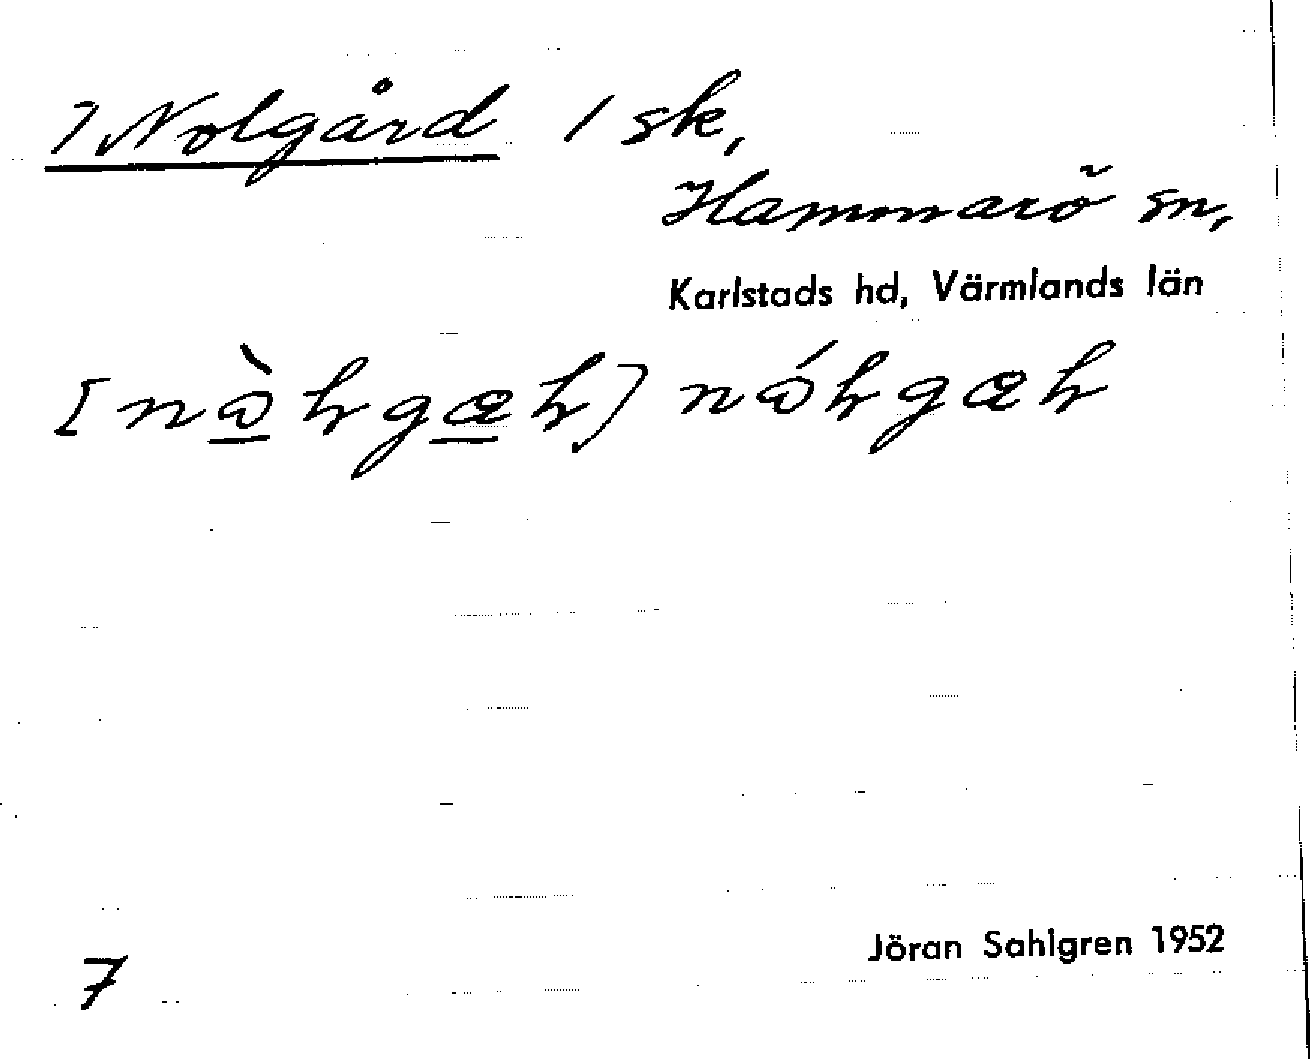 7 Nolgård 1 sk,
Hammarö sn,
Karlstads hd, Värmlands län
Jöran Sahlgren 1952
7